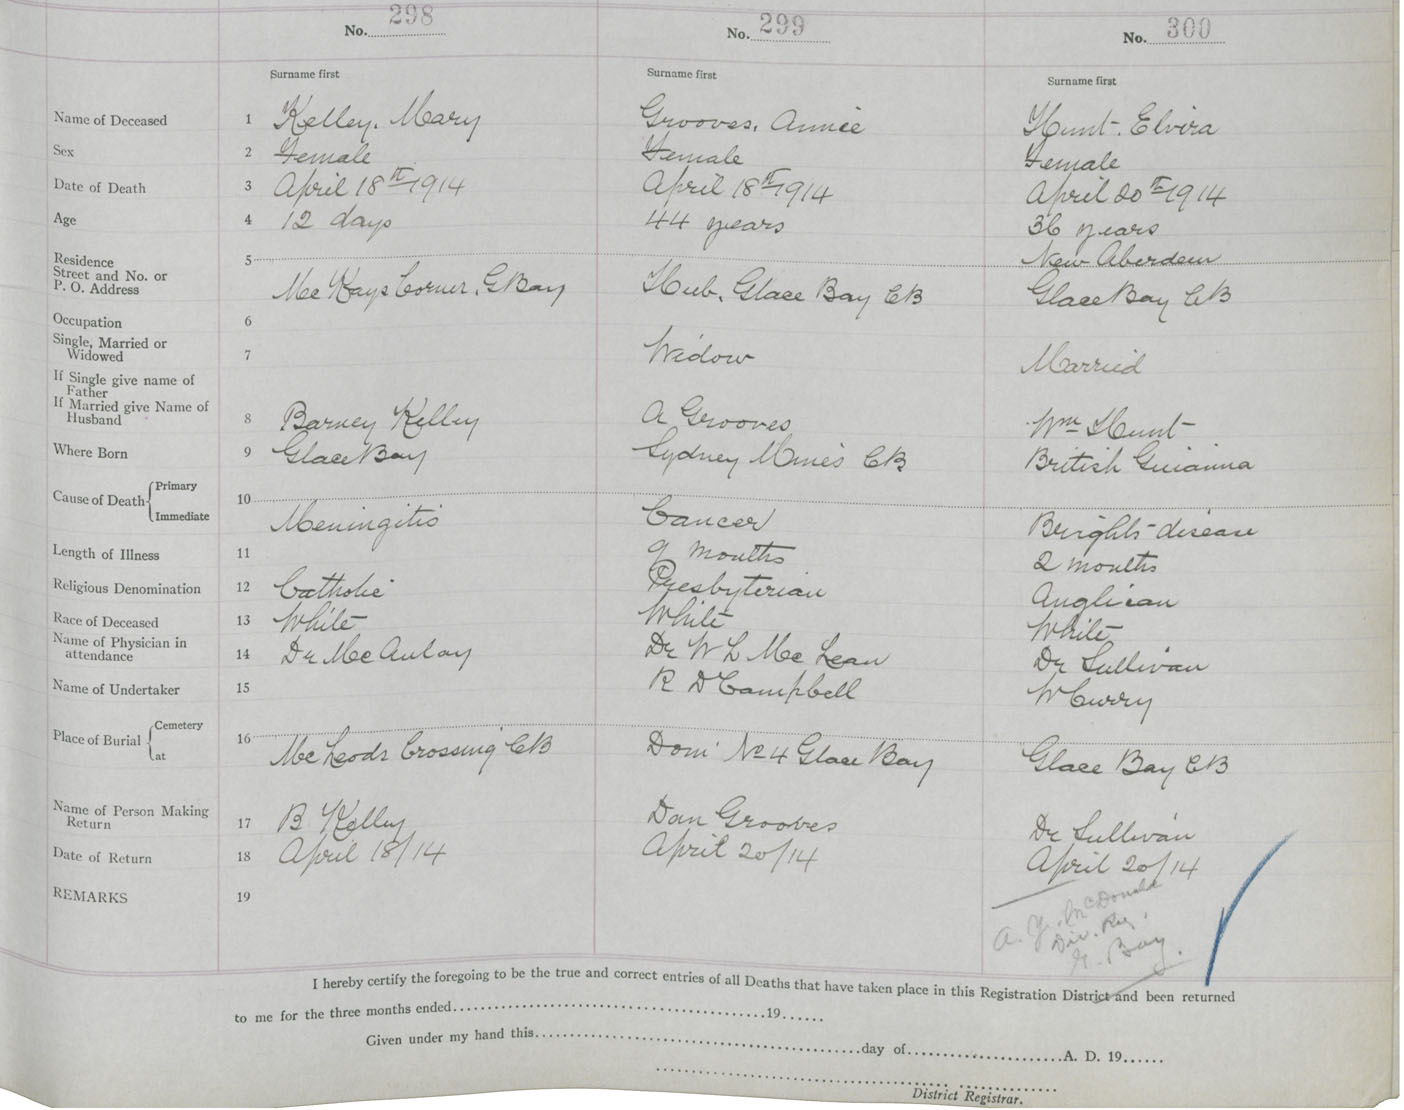 No. 298
No. 299
No. 300
Surname first
Surname first
Surname first
Name of Deceased 1 Kelley, Mary Grooves, Annie Hunt, Elvira
Sex 2 Female Female Female
Date of Death 3 April 18th 1914 April 18th 1914 April 20th 1914
Age 4 12 days 44 years 36 years
Residence 5 New Aberdeen
Street and No. or
P. O. Address Mc Kays Corner, G Bay Hub, Glace Bay CB Glace Bay CB
Occupation 6
Single, Married or
Widowed 7 Widow Married
If Single give name of
Father
If Married give Name of
Husband 8 Barney Kelley A Grooves Wm Hunt
Where Born 9 Glace Bay Sydney Mines CB British Guianna
Cause of Death { Primary 10
Immediate Meningitis Cancer Brights disease
Length of Illness 11 9 months 2 months
Religious Denomination 12 Catholic Presbyterian Anglican
Race of Deceased 13 White White White
Name of Physician in
attendance 14 Dr Mc Aulay Dr W L Mc Lean Dr Sullivan
Name of Undertaker 15 R D Campbell W Curry
Place of Burial { Cemetery 16
at Mc Leods Crossing CB Dom' No 4 Glace Bay Glace Bay CB
Name of Person Making
Return 17 B Kelley Dan Grooves Dr Sullivan
Date of Return 18 April 18/14 April 20/14 April 20/14
REMARKS 19
A. J. McDonald
Div. Reg.
G. Bay.
I hereby certify the foregoing to be the true and correct entries of all Deaths that have taken place in this Registration District and been returned
to me for the three months ended..........19......
Given under my hand this..........day of..........A. D. 19......
District Registrar.